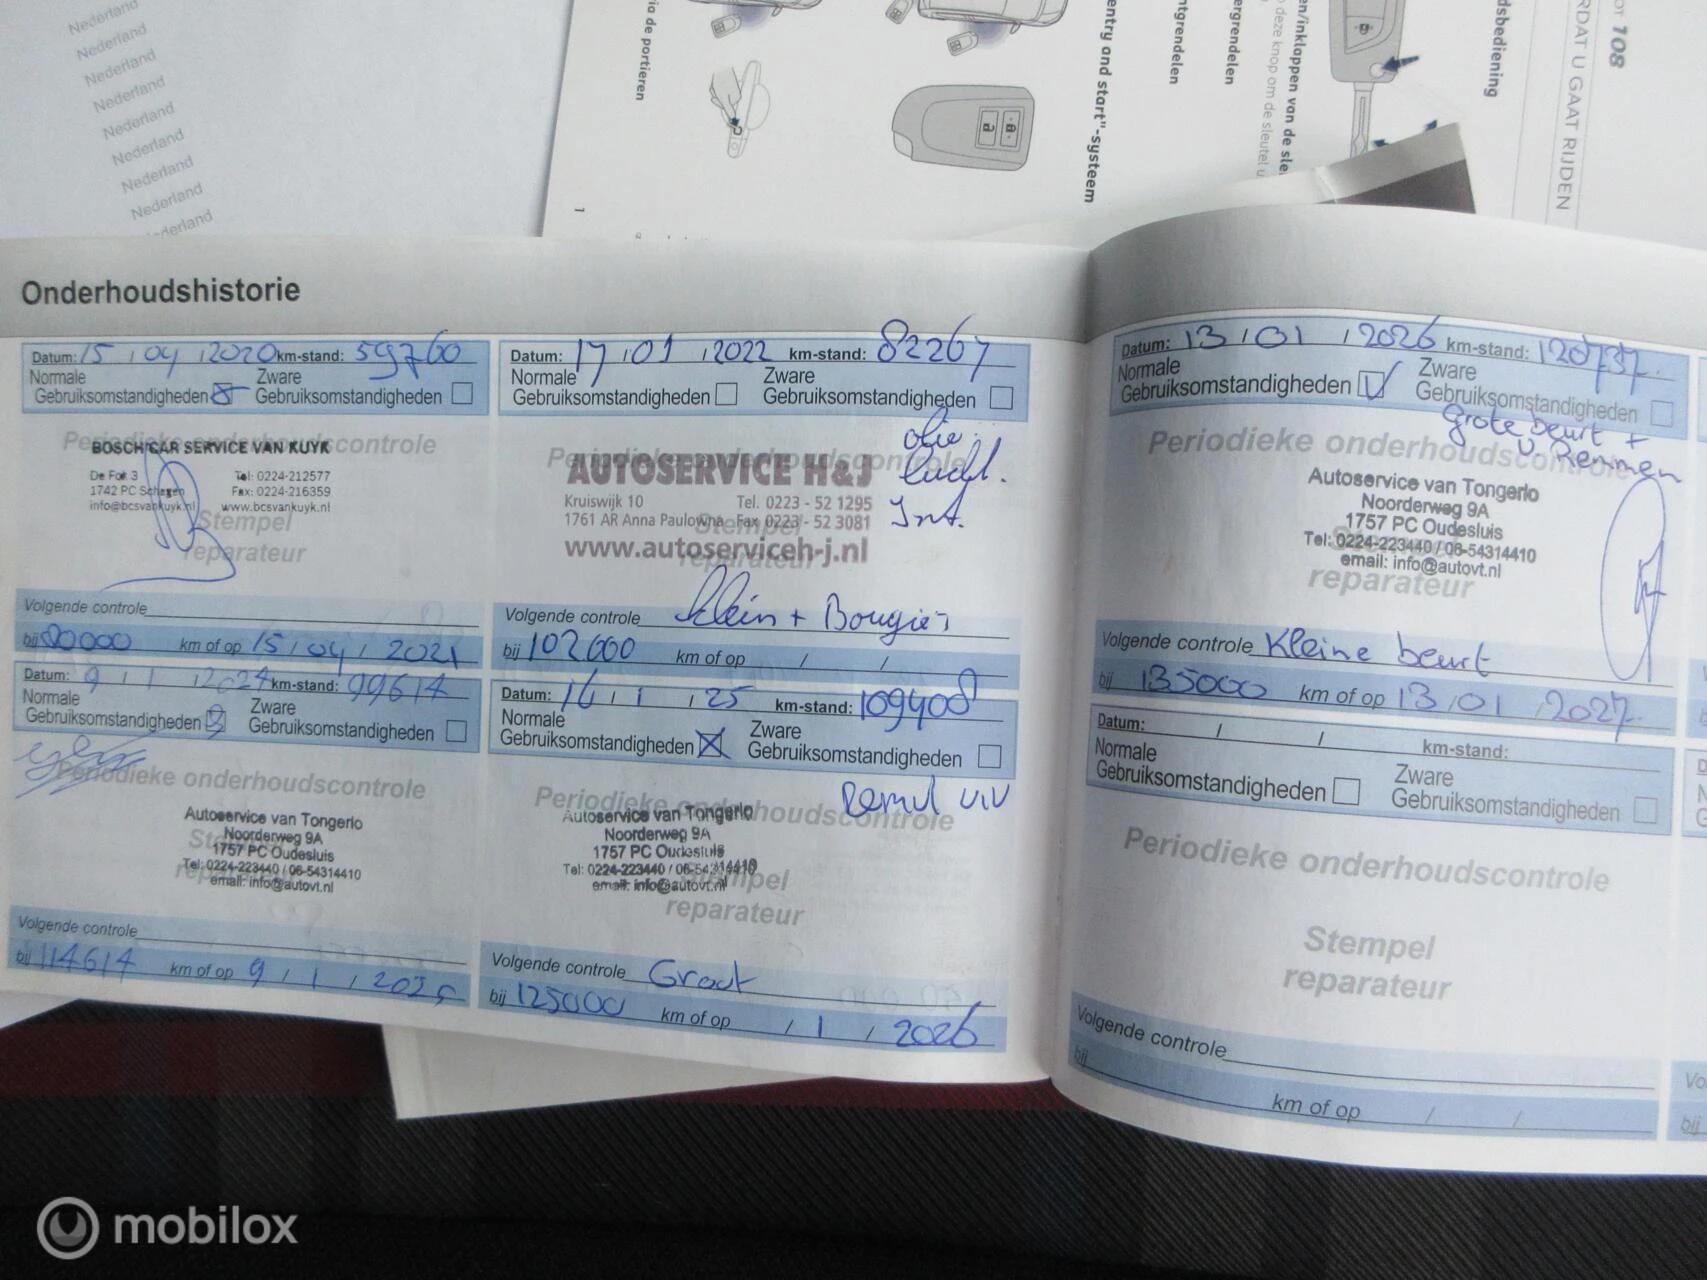 Nederland
Nederland
Nederland
Nederland
Nederland
Nederland
Nederland
Nederland
ia de portieren
entry and start"-systeem
ntgrendelen
ergrendelen
en/inklappen van de sle
deze knop om de sleutel u
dsbediening
RDAT U GAAT RIJDEN
OT 108
1
Onderhoudshistorie
Datum: 15 / 04 / 2020 km-stand: 59760
Normale
Gebruiksomstandigheden
Zware
Gebruiksomstandigheden
Periodieke onderhoudscontrole
BOSCH CAR SERVICE VAN KUYK
De Fok 3 Tel: 0224-212577
1742 PC Schagen Fax: 0224-216359
info@bcsvankuyk.nl www.bcsvankuyk.nl
Stempel
reparateur
Volgende controle
bij 80000 km of op 15 / 04 / 2021
Datum: 17 / 01 / 2022 km-stand: 82267
Normale
Gebruiksomstandigheden
Zware
Gebruiksomstandigheden
olie
Lucht.
Int.
Periodieke onderhoudscontrole
AUTOSERVICE H&J
Kruiswijk 10 Tel. 0223 - 52 1295
1761 AR Anna Paulowna Fax 0223 - 52 3081
www.autoserviceh-j.nl
Stempel
reparateur
Volgende controle Klein + Bougies
bij 102600 km of op / /
Datum: 9 / 1 / 2024 km-stand: 99614
Normale
Gebruiksomstandigheden
Zware
Gebruiksomstandigheden
Periodieke onderhoudscontrole
Autoservice van Tongerlo
Noorderweg 9A
1757 PC Oudesluis
Tel: 0224-223440 / 06-54314410
email: info@autovt.nl
Volgende controle
bij 114614 km of op 9 / 1 / 2025
Datum: 16 / 1 / 25 km-stand: 109408
Normale
Gebruiksomstandigheden
Zware
Gebruiksomstandigheden
Periodieke onderhoudscontrole
Autoservice van Tongerlo
Noorderweg 9A
1757 PC Oudesluis
Tel: 0224-223440 / 06-54314410
email: info@autovt.nl
Stempel
reparateur
Volgende controle Groot
bij 125000 km of op / 1 / 2026
Datum: 13 / 01 / 2026 km-stand: 120737.
Normale
Gebruiksomstandigheden
Zware
Gebruiksomstandigheden
Grote beurt +
v. Remmen
Periodieke onderhoudscontrole
Autoservice van Tongerlo
Noorderweg 9A
1757 PC Oudesluis
Tel: 0224-223440 / 06-54314410
email: info@autovt.nl
reparateur
Volgende controle Kleine beurt
bij 135000 km of op 13 / 01 / 2027.
Datum: / / km-stand:
Normale
Gebruiksomstandigheden
Zware
Gebruiksomstandigheden
Periodieke onderhoudscontrole
Stempel
reparateur
Volgende controle
bij km of op / /
Vo
bij
mobilox